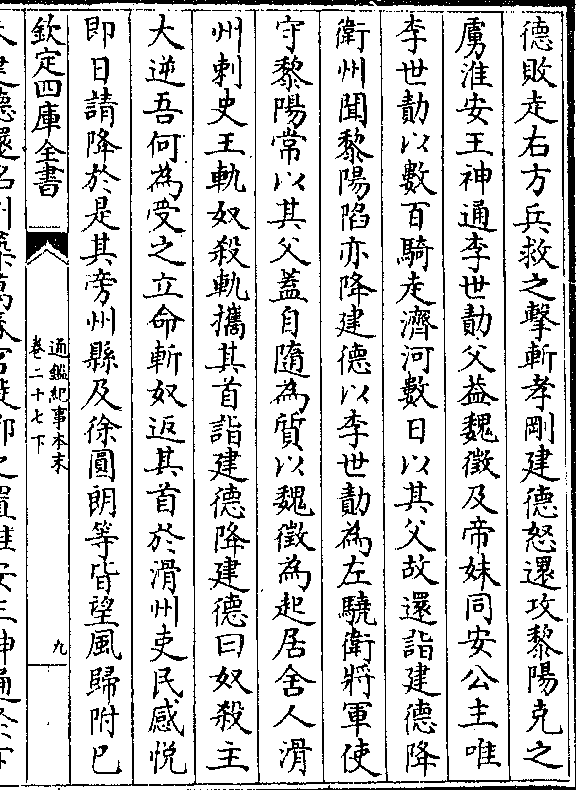 德敗走右方兵救之擊斬孝剛建德怒還攻黎陽克之
虜淮安王神通李世勣父益魏徵及帝妹同安公主唯
李世勣以數百騎走濟河數日以其父故還詣建德降
衛州聞黎陽陷亦降建德以李世勣為左驍衛將軍使
守黎陽常以其父蓋自隨為質以魏徵為起居舍人滑
州刺史王軌奴殺軌攜其首詣建德降建德曰奴殺主
大逆吾何為受之立命斬奴返其首於滑州吏民感悦
即日請降於是其旁州縣及徐圓朗等皆望風歸附已
欽定四庫全書
通鑑紀事本末
卷二十七下
九